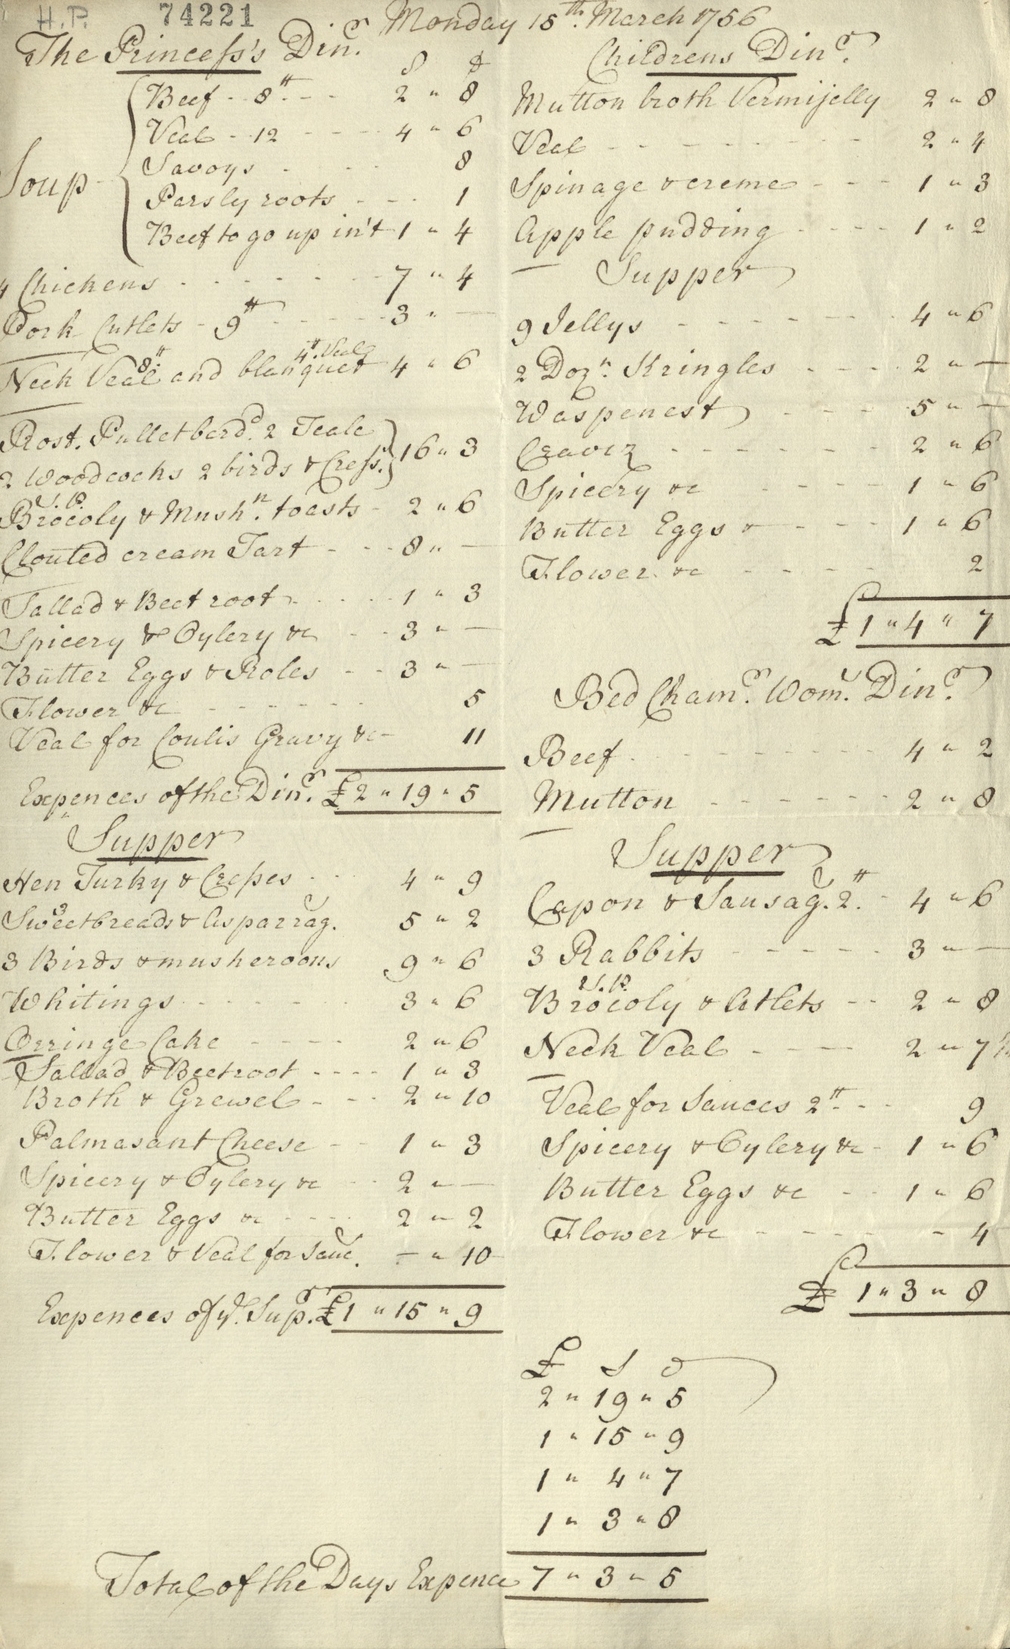 H.P. 74221 Monday 15th. March 1756
The Princess's Dinr.
S d
Soup
Beef - - 8tt. - - - 2 " 8
Veal - - 12 - - - - 4 " 6
Savoys - - - 8
Parsly roots - - - 1
Beef to go up in't 1 " 4
4 Chickens - - - - - - 7 " 4
Pork Cutlets - 9tt - - - - - 3 " —
Neck Veal 8tt and blanquet 4tt. Veal 4 " 6
Rost. Pullet bard. 2 Teale
2 Woodcocks 2 birds & Cress. 16 " 3
Brocoly & Mushn. toasts - 2 " 6
Clouted cream Tart - - - 8 " —
Sallad & Beet root - - - - 1 " 3
Spicery & Oylery &c - - 3 " —
Butter Eggs & Roles - - 3 " —
Flower &c - - - - - - 5
Veal for Coulis Gravy &c - 11
Expences of the Dinr. £2 " 19 " 5
Supper
Hen Turky & Cresses - - - 4 " 9
Sweetbreads & Asparrag. 5 " 2
3 Birds & musheroons 9 " 6
Whitings - - - - - 3 " 6
Orringe Cake - - - - - 2 " 6
Sallad & Beetroot - - - - 1 " 3
Broth & Grewel - - - 2 " 10
Palmasant Cheese - - 1 " 3
Spicery & Oylery &c - - 2 " —
Butter Eggs &c - - - - 2 " 2
Flower & Veal for Sauc. — " 10
Expences of ye. Sup. £1 " 15 " 9
Childrens Dinr.
Mutton broth Vermijelly 2 " 8
Veal - - - - - - - - 2 " 4
Spinage & creme - - - - 1 " 3
Apple pudding - - - - 1 " 2
Supper
9 Jellys - - - - - - 4 " 6
2 Dozn. Kringles - - - - 2 " —
Waspenest - - - - 5 " —
Cravir - - - - - - - 2 " 6
Spicery &c - - - - - 1 " 6
Butter Eggs & - - - - 1 " 6
Flower &c - - - - - 2
£ 1 " 4 " 7
Bed Chamr. Wom. Dinr.
Beef - - - - - - - - 4 " 2
Mutton - - - - - - 2 " 8
Supper
Capon & Sausag. 2tt. - 4 " 6
3 Rabbits - - - - 3 " —
Brocoly & Atlets - - 2 " 8
Neck Veal - - - - 2 " 7½
Veal for Sauces 2tt - - 9
Spicery & Oylery &c - 1 " 6
Butter Eggs &c - - 1 " 6
Flower &c - - - - - - 4
£ 1 " 3 " 8
£ S d
2 " 19 " 5
1 " 15 " 9
1 " 4 " 7
1 " 3 " 8
Total of the Days Expence 7 " 3 " 5